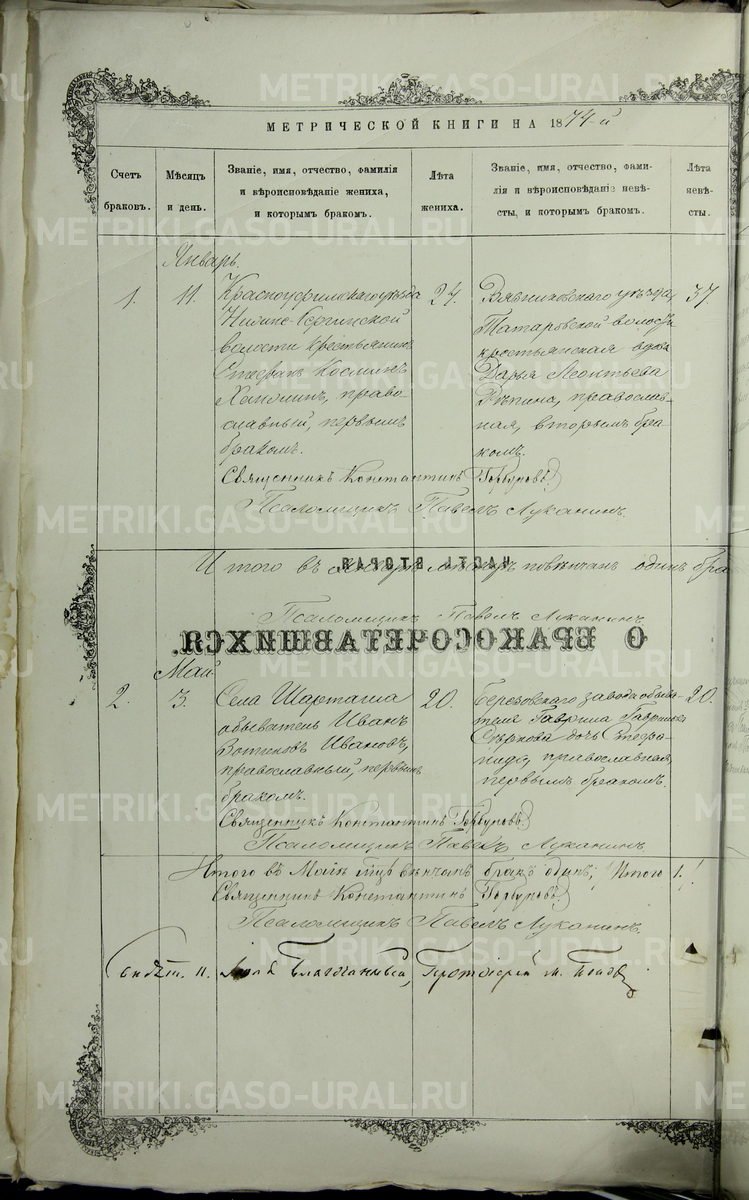 МЕТРИЧЕСКОЙ КНИГИ НА 1874-й
Счетъ браковъ.
Мѣсяцъ и день.
Званіе, имя, отчество, фамилія и вѣроисповѣданіе жениха, и которымъ бракомъ.
Лѣта жениха.
Званіе, имя, отчество, фамилія и вѣроисповѣданіе невѣсты, и которымъ бракомъ.
Лѣта невѣсты.
Январь.
1. 11. Красноуфимскаго уѣзда 24. Вязниковскаго уѣзда, 37
волости крестьянинъ Татаровской волости
Стефанъ Косминъ крестьянская вдова
православный, первымъ Дарья Леонтьева
бракомъ. Рѣпина, православная, вторымъ бракомъ.
Священникъ Константинъ Горбуновъ
Псаломщикъ Павелъ Луканинъ.
Итого въ Январѣ мѣсяцѣ повѣнчанъ одинъ бра
Псаломщикъ Павелъ Луканинъ
ЧАСТЬ ВТОРАЯ.
О БРАКОСОЧЕТАВШИХСЯ.
Май.
2. 3. Села Шарташа 20. Березовскаго завода обыва- 20.
обыватель Иванъ теля Гаврила
Ивановъ, дочь Степа-
православный, первымъ нида, православная,
бракомъ. первымъ бракомъ.
Священникъ Константинъ Горбуновъ
Псаломщикъ Павелъ Луканинъ
Итого въ Маѣ мцѣ вѣнчанъ бракъ одинъ, Итого 1.
Священникъ Константинъ Горбуновъ
Псаломщикъ Павелъ Луканинъ.
11. Благочинный, Протоіерей
METRIKI.GASO-URAL.RU